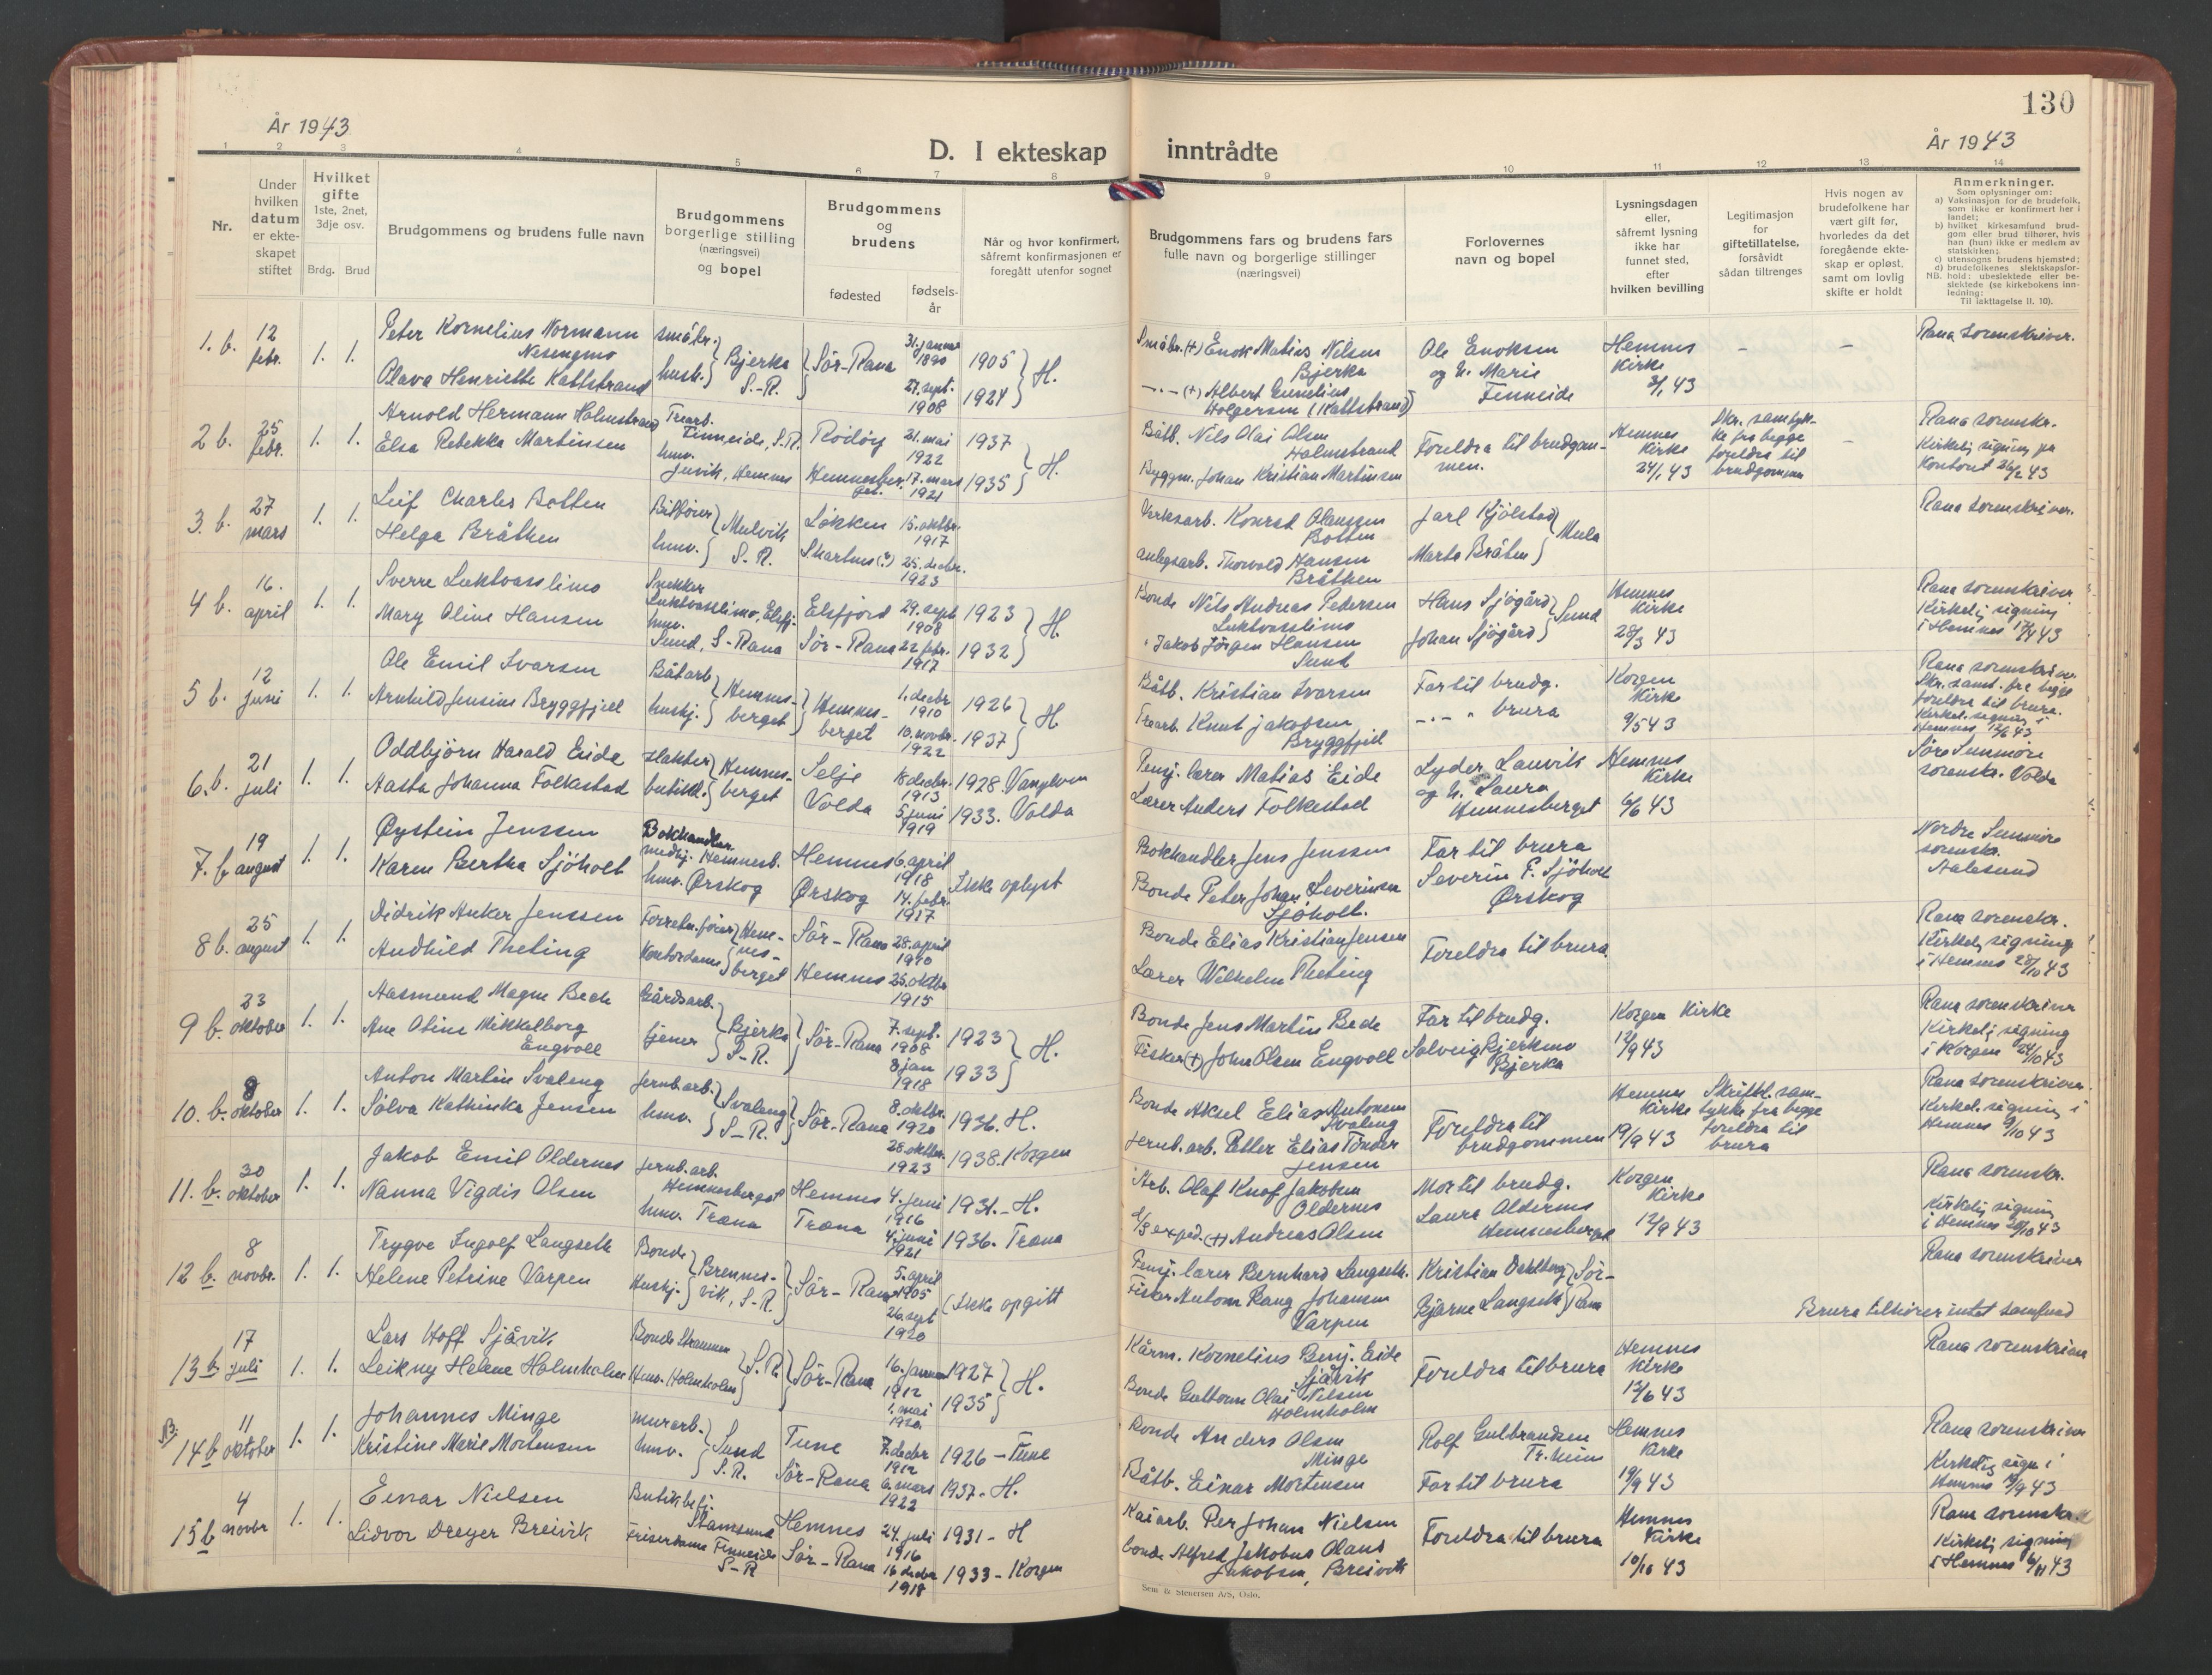 130
År 1943
År 1943
D. I ekteskap inntrådte
1 2 3 4 5 6 7 8 9 10 11 12 13 14
Nr.
Under
hvilken
datum
er ekte-
skapet
stiftet
Hvilket
gifte
1ste, 2net,
3dje osv.
Brdg. Brud
Brudgommens og brudens fulle navn
Brudgommens
borgerlige stilling
(næringsvei)
og bopel
Brudgommens
og
brudens
fødested
fødsels-
år
Når og hvor konfirmert,
såfremt konfirmasjonen er
foregått utenfor sognet
Brudgommens fars og brudens fars
fulle navn og borgerlige stillinger
(næringsvei)
Forlovernes
navn og bopel
Lysningsdagen
eller,
såfremt lysning
ikke har
funnet sted,
efter
hvilken bevilling
Legitimasjon
for
giftetillatelse,
forsåvidt
sådan tiltrenges
Hvis nogen av
brudefolkene har
vært gift før,
hvorledes da det
foregående ekte-
skap er opløst,
samt om lovlig
skifte er holdt
Anmerkninger.
Som oplysninger om:
a) Vaksinasjon for de brudefolk,
som ikke er konfirmert her i
landet;
b) hvilket kirkesamfund brud-
gom eller brud tilhører, hvis
han (hun) ikke er medlem av
statskirken;
c) utensogns brudens hjemsted;
d) brudefolkenes slektskapsfor-
NB. hold: ubeslektede eller be-
slektede (se kirkebokens inn-
ledning:
Til iakttagelse II. 10).
1. b. 12 febr. 1. 1.
Peter Kornelius Normann
Nesengmo
Olava Henriette Kattstrand
småbr. } Bjerka
husb. } S.-R.
Sør-Rana
31. januar 1890
27. sept. 1908
1905
1924 } H.
Småbr. (+) Enok Matias Nilsen
Bjerka
—.— (+) Albert Cornelius
Holgersen (Kattstrand)
Ole Enoksen
og h. Marie
Finneide
Hemnes
Kirke
3/1 43
—
—
Rana sorenskriver.
2 b. 25 febr. 1. 1.
Arnold Hermann Holmstrand
Elsa Rebekka Martinsen
Trearb.
Finneide, S.R.
hmv.
Juvik, Hemnes
Rödöy
Hemnesber-
get.
21. mai 1922
17. mars 1921
1937
1935 } H.
Båtb. Nils Olai Olsen
Holmstrand
Byggm. Johan Kristian Martinsen
Foreldra til brudgom-
men.
Hemnes
Kirke
24/1 43
Skr. samtyk-
ke fra begge
foreldre til
brudgommen
—
Rana sorenskr.
Kirkelig signing på
Kontoret 26/2 43
3 b. 27 mars 1. 1.
Leif Charles Botten
Helga Bråthen
Bilfører } Mulvik
hmv. } S.-R.
Løkken
Skartnes (?)
15. oktbr. 1917
25. decbr. 1923
Verksarb. Konrad Olaussen
Botten
Anlegsarb. Thorvald Hansen
Bråthen
Jarl Kjölstad
Marta Bråten } Mula
Rana sorenskriver.
4 b. 16. april 1. 1.
Sverre Luktvasslimo
Mary Oline Hansen
Snekker
Luktvasslimo, Elsfj.
hmv.
Sund, S-Rana
Elsfjord
Sör-Rana
29. sept 1908
22 febr. 1917
1923
1932 } H.
Bonde Nils Andreas Pedersen
Luktvasslimo
" Jakob Jörgen Hansen
Sund
Hans Sjögård
Johan Sjögård } Sund
Hemnes
Kirke
28/3 43
Rana sorenskriver
Kirkelig signing
i Hemnes 17/4 43
5 b. 12 juni 1. 1.
Ole Emil Ivarsen
Arnhild Jensine Bryggfjell
Båtarb
hushj. } Hemnes-
berget
Hemnes-
berget
1. decbr 1910
10. novbr. 1922
1926
1937 } H
Båtb. Kristian Ivarsen
Trearb. Knut Jakobsen
Bryggfjell
Far til brudg.
—.— " brura
Korgen
Kirke
9/5 43
Rana sorenskriver
Skr. samt. fra begge
foreldre til brura.
Kirkel. signing i
Hemnes 12/6 43
6. b. 21 juli 1. 1.
Oddbjörn Harald Eide
Aasta Johanna Folkestad
slakter } Hemnes-
butikd. } berget
Selje
Volda
18 decbr. 1913
5. juni 1919
1928. Vanylven
1933. Volda
Pensj. lærer Matias Eide
Lærer Anders Folkestad
Lyder Lauvik
og h. Laura
Hemnesberget
Hemnes
Kirke
6/6 43
Søre Sunnmöre
sorenskr. Volda
7. b. 19 august 1. 1.
Øystein Jenssen
Karen Bertha Sjöholt
Bokhandler
medhj. Hemnesb.
hmv. Ørskog
Hemnes
Ørskog
6. april 1918
14. febr. 1917
Ikke oplyst
Bokhandler Jens Jenssen
Bonde Peter Johan Severinsen
Sjöholt.
Far til brura
Severin P. Sjöholt
Ørskog
Nordre Sunnmöre
sorenskr.
Aalesund
8 b. 25 august 1. 1.
Didrik Anker Jenssen
Audhild Theting
Forretn.förer } Hem-
Kontordame } nes-
berget
Sör-Rana
Hemnes
28. april 1910
25. oktbr 1915
Bonde Elias Kristian Jensen
Lærer Wilhelm Theting
Foreldra til brura
Rana sorenskr.
Kirkelig signing
i Hemnes 28/10 43
9 b. 23 oktober 1. 1.
Aasmund Magne Bech
Ane Otine Mikkelborg
Engvoll
Gårdsarb.
tjener } Bjerka
S.-R.
Sör-Rana
7. sept. 1908
8 jan 1918
1923
1933 } H.
Bonde Jens Martin Bech
Fisker (+) John Olsen Engvoll
Far til brudg.
Solveig Bjerkmo
Bjerka
Korgen Kirke
12/9 43
Rana sorenskriver
Kirkelig signing
i Korgen 24/10 43
10. b. 8 oktober 1. 1.
Anton Martin Svaleng
Sölva Kathinka Jensen
Jernb.arb.
hmv. } Svaleng
S-R.
Sör-Rana
8. oktbr. 1920
28. oktbr. 1923
1936. H.
1938. Korgen
Bonde Aksel Elias Antonsen
Svaleng
Jernb. arb. Petter Elias Tönder
Jensen
Foreldra til
brudgommen
Hemnes
Kirke
19/9 43
Skriftl. sam-
tykke fra begge
foreldra til
brura
Rana sorenskriver.
Kirkel. signing i
Hemnes 9/10 43
11. b. 30 oktober 1. 1.
Jakob Emil Oldernes
Nanna Vigdis Olsen
Jernb.arb.
Hemnesberget
hmv. Træna
Hemnes
Træna
4. juni 1916
4. juni 1921
1931. - H.
1936. Træna
Arb. Olaf Knof Jakobsen
Oldernes
d/s exped. (+) Andreas Olsen
Mor til brudg.
Laura Oldernes
Hemnesberget
Korgen
Kirke
12/9 43
Rana sorenskr.
Kirkelig signing
i Hemnes 30/10 43
12 b. 8 novbr. 1. 1.
Trygve Ingolf Langseth
Helene Petrine Varpen
Bonde
Hushj. } Brennes-
vik, S-R.
Sör-Rana
5. april 1905
26. sept 1920
(Ikke opgitt
Pensj. lærer Bernhard Langseth.
Fisker Antoni Rang Johansen
Varpen
Kristian Dahlberg } Sör-
Bjarne Langseth } Rana
Rana sorenskriver
Brura tilhører intet samfund
13 b. 17 juli 1. 1.
Lars Hoff Sjåvik
Leikny Helene Holmholm
Bonde Straumen
Hmv. Holmholm } S.R.
Sör-Rana
16. januar 1912
1. mai 1920
1927
1935 } H.
Kårm. Kornelius Benj. Eide
Sjåvik
Bonde Guttorm Olai Nilsen
Holmholm
Foreldra til brura
Hemnes
Kirke
13/6 43
Rana sorenskriver
14 b 11 oktober 1. 1.
Johannes Minge
Kristine Marie Mortensen
murarb.
hmv. } Sund
S.R.
Tune
Sör-Rana
7. decbr 1912
6. mars 1922
1926 - Tune
1937. H.
Bonde Anders Olsen
Minge
Båtb. Einar Mortensen
Rolf Gulbrandsen
Tr.heim
Far til brura
Hemnes
Kirke
19/9 43
Rana sorenskriver
Kirkelig sign i
Hemnes 19/9 43
15 b 4 novbr 1. 1.
Einar Nielsen
Lidvor Dreyer Breivik
Butikbetj.
Stamsund
Friserdame Finneide
S-R
Hemnes
Sör-Rana
24. juli 1916
16 decbr 1918
1931 - H
1933 - Korgen
Kaiarb. Per Johan Nielsen
bonde Alfred Jakobus Olaus
Jakobsen, Breivik
Foreldra til brura
Hemnes
Kirke
10/10 43
Rana sorenskr.
Kirkelig signing
i Hemnes 6/11 43
Sem & Stenersen A/S, Oslo.